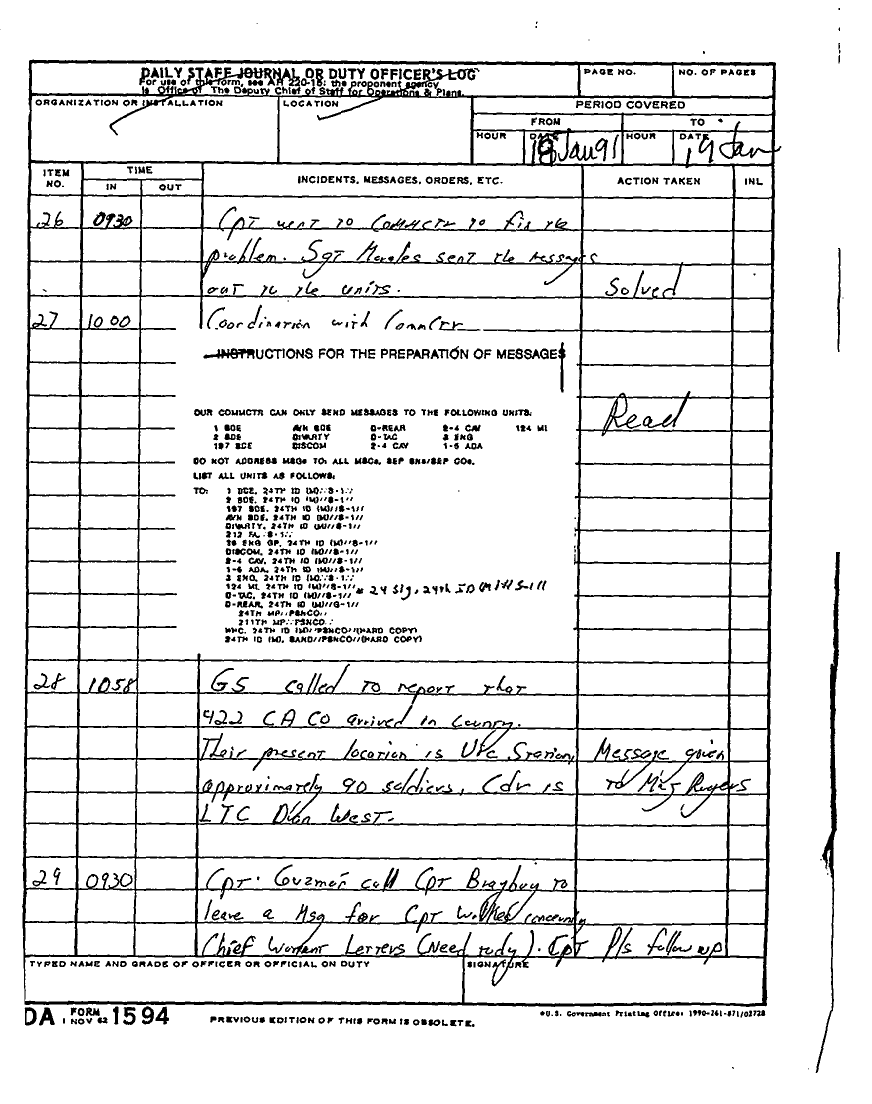 DAILY STAFF JOURNAL OR DUTY OFFICER'S LOG
For use of this form, see AR 220-15; the proponent agency
is Office of The Deputy Chief of Staff for Operations & Plans.
PAGE NO.
NO. OF PAGES
ORGANIZATION OR INSTALLATION
LOCATION
PERIOD COVERED
FROM
TO
HOUR
DATE
HOUR
DATE
18 Jan 91
19 Jan
ITEM NO.
TIME
IN
OUT
INCIDENTS, MESSAGES, ORDERS, ETC.
ACTION TAKEN
INL
26 0930 Cpt went to Commctr to fix the
problem. Sgt Morales sent the messages
out to the units. Solved
27 1000 Coordination with Commctr
INSTRUCTIONS FOR THE PREPARATION OF MESSAGES
OUR COMMCTR CAN ONLY SEND MESSAGES TO THE FOLLOWING UNITS:
Read
1 BDE AVN BDE D-REAR 2-4 CAV 124 MI
2 BDE DIVARTY D-TAC 3 ENG
197 BDE DISCOM 2-4 CAV 1-5 ADA
DO NOT ADDRESS MSGs TO: ALL MSCs, SEP BNs/SEP COs.
LIST ALL UNITS AS FOLLOWS:
TO: 1 BDE, 24TH ID (M)//S-1//
2 BDE, 24TH ID (M)//S-1//
197 BDE, 24TH ID (M)//S-1//
AVN BDE, 24TH ID (M)//S-1//
DIVARTY, 24TH ID (M)//S-1//
212 FA//S-1//
36 ENG GP, 24TH ID (M)//S-1//
DISCOM, 24TH ID (M)//S-1//
2-4 CAV, 24TH ID (M)//S-1//
1-5 ADA, 24TH ID (M)//S-1//
3 ENG, 24TH ID (M)//S-1//
124 MI, 24TH ID (M)//S-1// * 24 Sig, 24th ID (M)//S-1//
D-TAC, 24TH ID (M)//S-1//
D-REAR, 24TH ID (M)//G-1//
24TH MP//PSNCO//
211TH MP//PSNCO//
HHC, 24TH ID (M)//PSNCO//(HARD COPY)
24TH ID (M), BAND//PSNCO//(HARD COPY)
28 1058 G5 called to report that
422 CA CO arrived in country.
Their present location is Station, Message given
approximately 90 soldiers, Cdr is to Maj Rogers
LTC Don West.
29 0930 Cpt. Guzman call Cpt to
leave a Msg for Cpt concerning
Chief Warrant Letters (Need rudy). Cpt P/s follow up
TYPED NAME AND GRADE OF OFFICER OR OFFICIAL ON DUTY
SIGNATURE
DA FORM 1 NOV 62 1594
PREVIOUS EDITION OF THIS FORM IS OBSOLETE.
*U.S. Government Printing Office: 1990-261-871/02728